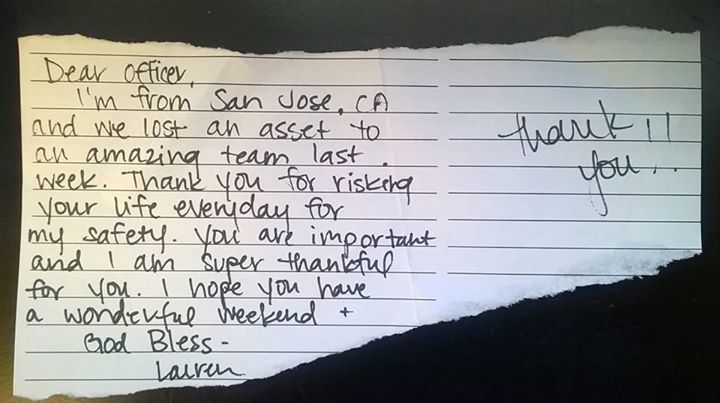 Dear Officer,
I'm from San Jose, CA
and we lost an asset to
an amazing team last
week. Thank you for risking
your life everyday for
my safety. You are important
and I am super thankful
for you. I hope you have
a wonderful weekend +
God Bless-
Lauren
thank !!
you...